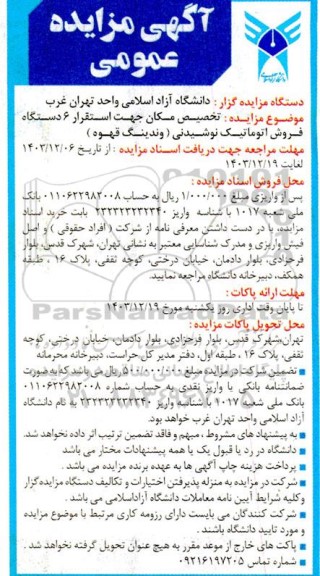 آگهی مزایده
عمومی
دستگاه مزایده گزار : دانشگاه آزاد اسلامی واحد تهران غرب
موضوع مزایـده : تخصیـص مـکان جهـت اسـتقرار ۶ دسـتگاه
فـروش اتوماتیـک نوشـیدنی ( وندینـگ قهـوه )
مهلت مراجعه جهت دریافت اسـناد مزایده : از تاریخ ۱۴۰۳/۱۲/۰۶
لغایت ۱۴۰۳/۱۲/۱۹
محل فروش اسناد مزایده :
پس از واریزی مبلغ ۱/۰۰۰/۰۰۰ ریال به حساب ۰۱۱۰۶۲۲۹۸۲۰۰۸ بانک
ملی شعبه ۱۰۱۷ با شناسه واریز بابت خرید اسناد
مزایده، با در دست داشتن معرفی نامه از شرکت ( افراد حقوقی ) و اصل
فیش واریزی و مدرک شناسایی معتبر به نشانی تهران، شهرک قدس، بلوار
فرحزادی، بلوار دادمان، خیابان درختی، کوچه ثقفی، پلاک ۱۶ ، طبقه
همکف، دبیرخانه دانشگاه مراجعه نمایید.
مهلت ارائه پاکات :
تا پایان وقت اداری روز یکشنبه مورخ ۱۴۰۳/۱۲/۱۹
محل تحویل پاکات مزایده :
تهران،شهرک قدس، بلوار فرحزادی، بلوار دادمان، خیابان درختی، کوچه
ثقفی، پلاک ۱۶ ، طبقه اول، دفتر مدیر کل حراست، دبیرخانه محرمانه
تضمین شرکت در مزایده مبلغ ۵۰۰/۰۰۰/۰۰۰ ریال می باشد که به صورت
ضمانتنامه بانکی یا واریز نقدی به حساب شماره ۰۱۱۰۶۲۲۹۸۲۰۰۸
بانک ملی شعبه ۱۰۱۷ با شناسه واریز به نام دانشگاه
آزاد اسلامی واحد تهران غرب خواهد بود.
به پیشنهاد های مشروط ، مبهم و فاقد تضمین ترتیب اثر داده نخواهد شد.
دانشگاه در رد یا قبول یک یا همه پیشنهادات مختار می باشد
پرداخت هزینه چاپ آگهی ها به عهده برنده مزایده می باشد .
شرکت در مزایده به منزله پذیرفتن اختیارات و تکالیف دستگاه مزایده گزار
و کلیه شرایط آیین نامه معاملات دانشگاه آزاداسلامی می باشد .
شرکت کنندگان می بایست دارای رزومه کاری مرتبط با موضوع مزایده
و مورد تایید دانشگاه باشند .
پاکت های خارج از موعد مقرر به هیچ عنوان تحویل گرفته نخواهد شد .
شماره تماس ۰۹۲۱۶۱۹۷۲۰۵